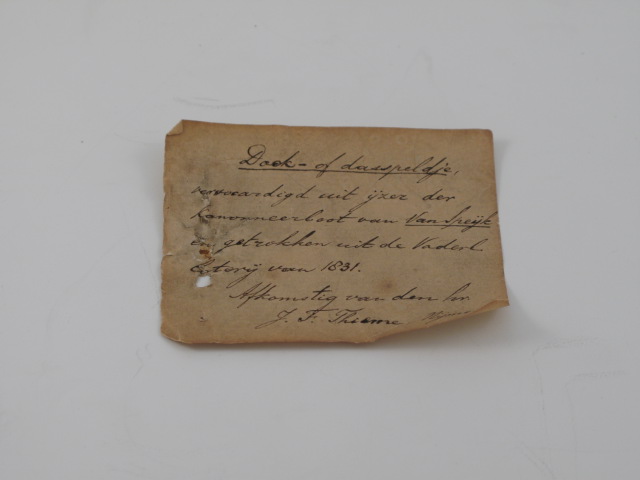 Doek- of dasspeldje,
vervaardigd uit ijzer der
kanonneerboot van Van Speijk
en getrokken uit de Vaderl
loterij van 1831.
Afkomstig van den hr.
J. F. Thieme